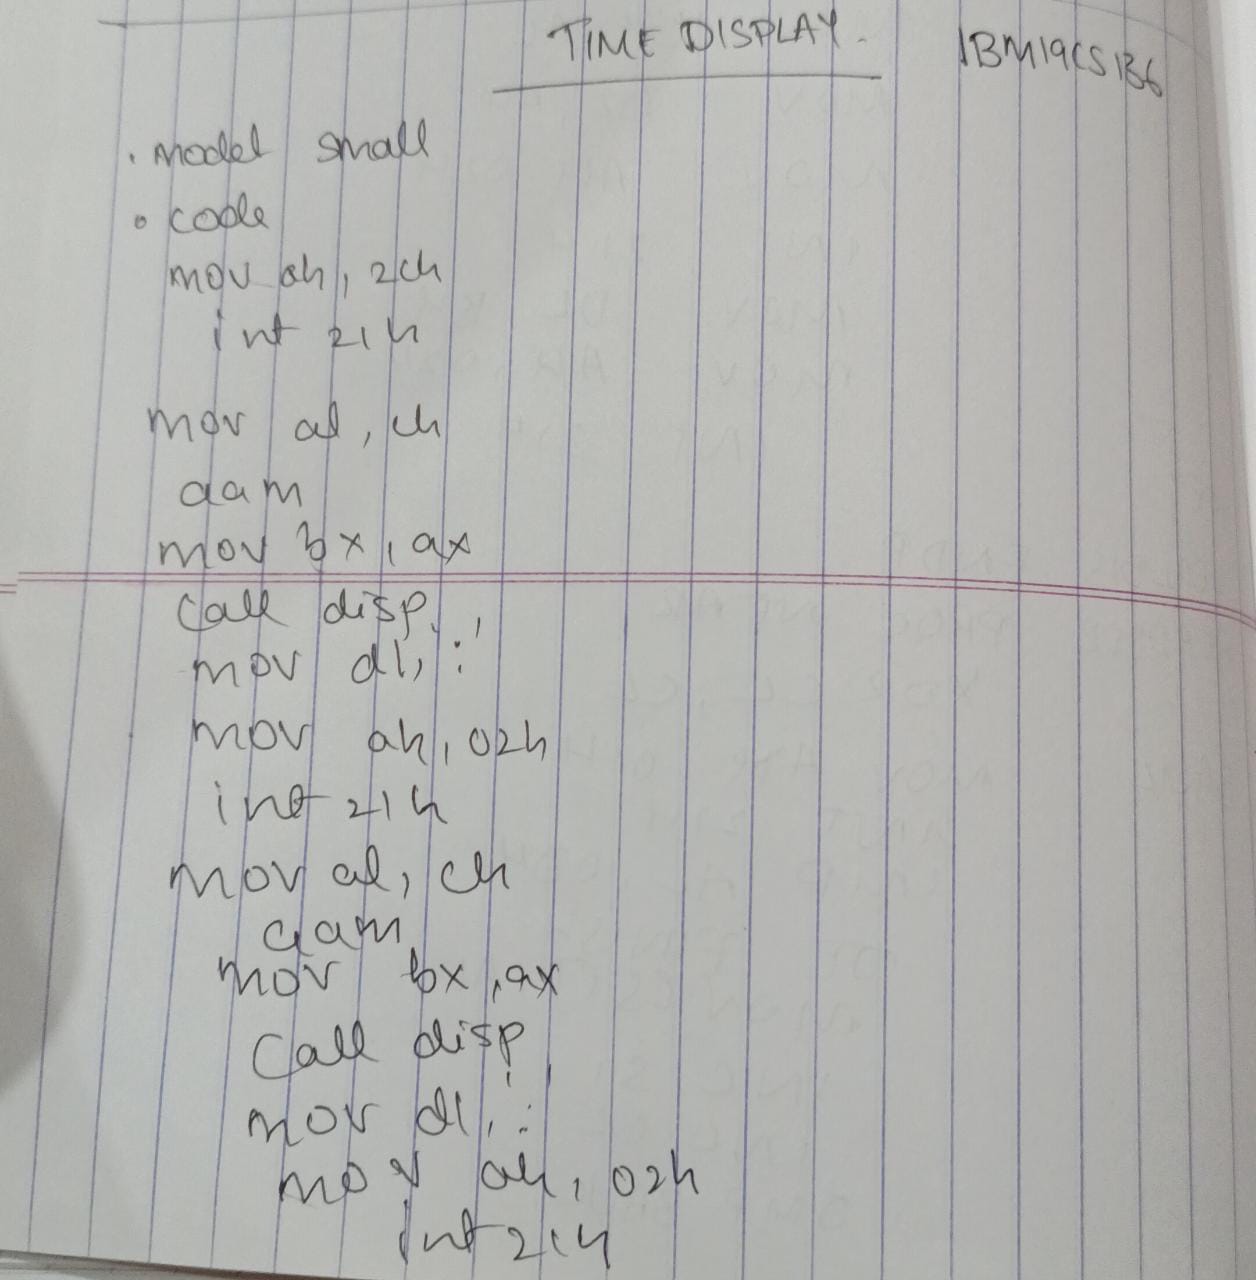 TIME DISPLAY. 1BM19CS136
.model small
.code
mov ah, 2ch
int 21h
mov al, ch
aam
mov bx, ax
call disp
mov dl, ':'
mov ah, 02h
int 21h
mov al, ch
aam
mov bx, ax
call disp
mov dl, ':'
mov ah, 02h
int 21h